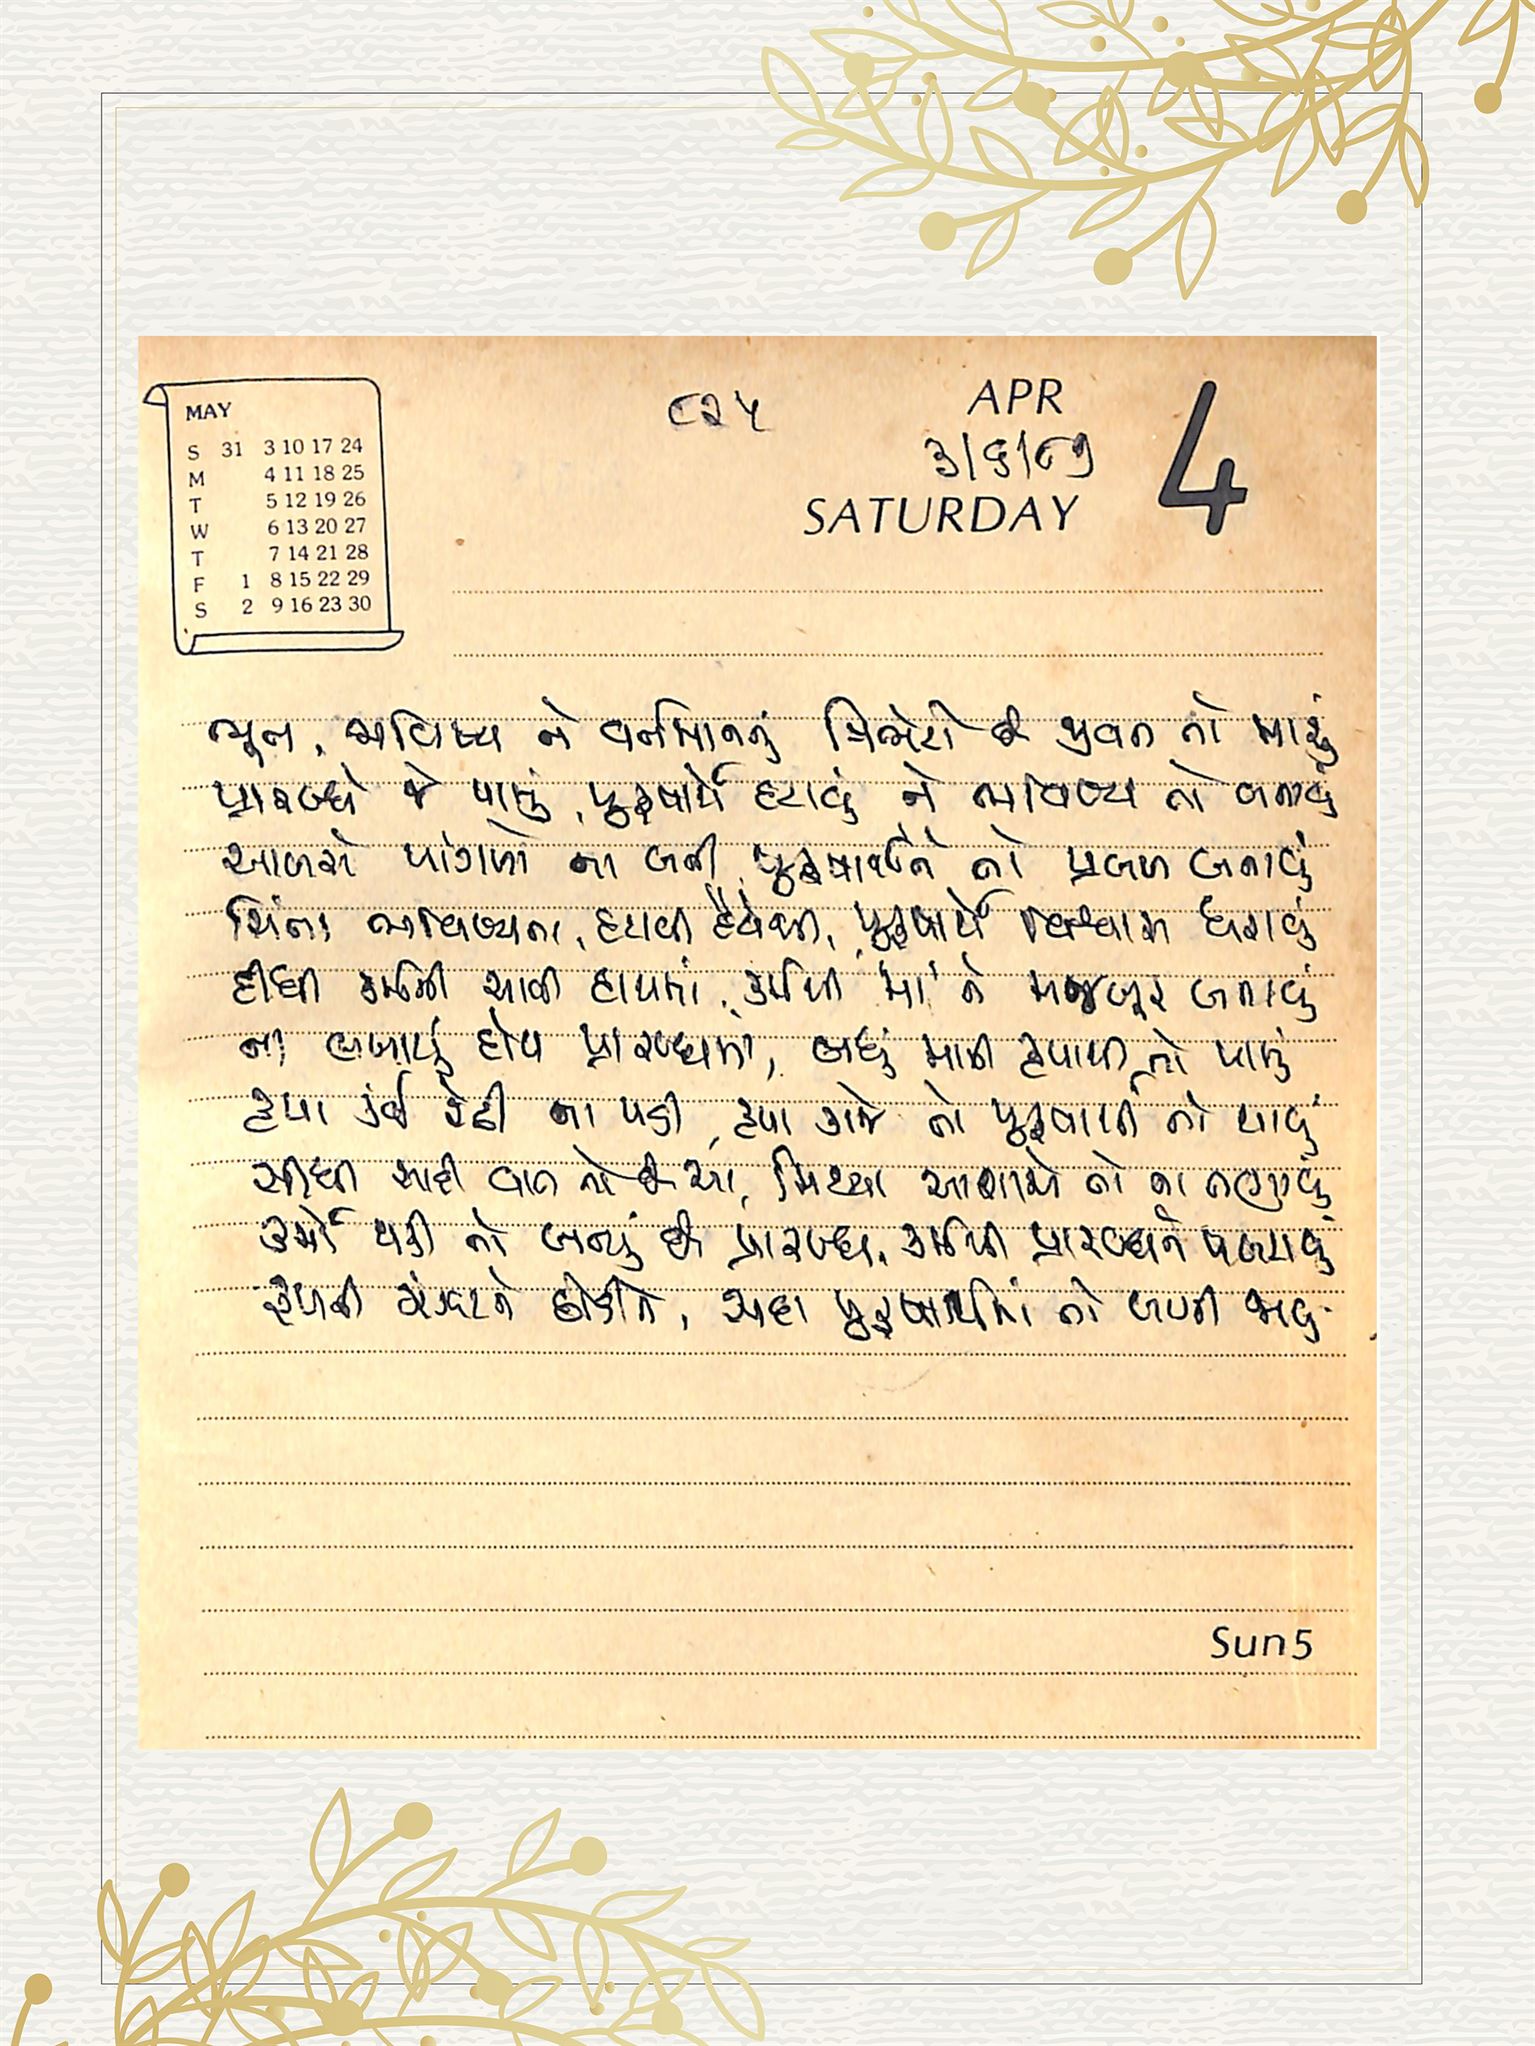 MAY
S 31 3 10 17 24
M 4 11 18 25
T 5 12 19 26
W 6 13 20 27
T 7 14 21 28
F 1 8 15 22 29
S 2 9 16 23 30
૮૨૫
APR 4
૩/૬/૮૧
SATURDAY
ભૂત, ભવિષ્ય ને વર્તમાનનું ત્રિભેટો છે જીવન તો મારું
પ્રારબ્ધે જે પામું, પુરુષાર્થે હટાવું ને ભવિષ્ય તો બનાવું
આળસે પાંગળો ના બની, પુરુષાર્થને તો પ્રબળ બનાવું
ચિંતા ભવિષ્યના, હટાવી હૈયેથી, પુરુષાર્થે વિશ્વાસ ધરાવું
દીધી કર્મની ચાવી હાથમાં, કર્મથી 'માં' ને મજબૂર બનાવું
ના લખાયું હોય પ્રારબ્ધમાં, બધું માની કૃપાથી તો પામું
કૃપા કંઈ રેઢી ના પડી, કૃપા કાજે તો પુરુષાર્થી તો થાવું
સીધી સાદી વાત તો છે આ, મિથ્યા આશાએ તો ના તણાવું
કર્મો થકી તો બન્યું છે પ્રારબ્ધ, કર્મથી પ્રારબ્ધને પલટાવું
ફળની ઝંઝટને છોડીને, સદા પુરુષાર્થમાં તો લાગી જાવું.
Sun 5